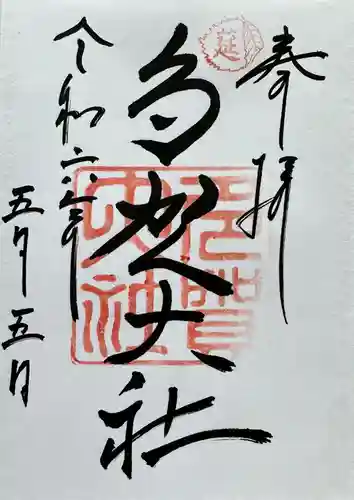 延
奉拝
多賀大社
多賀大社
令和六年
五月五日